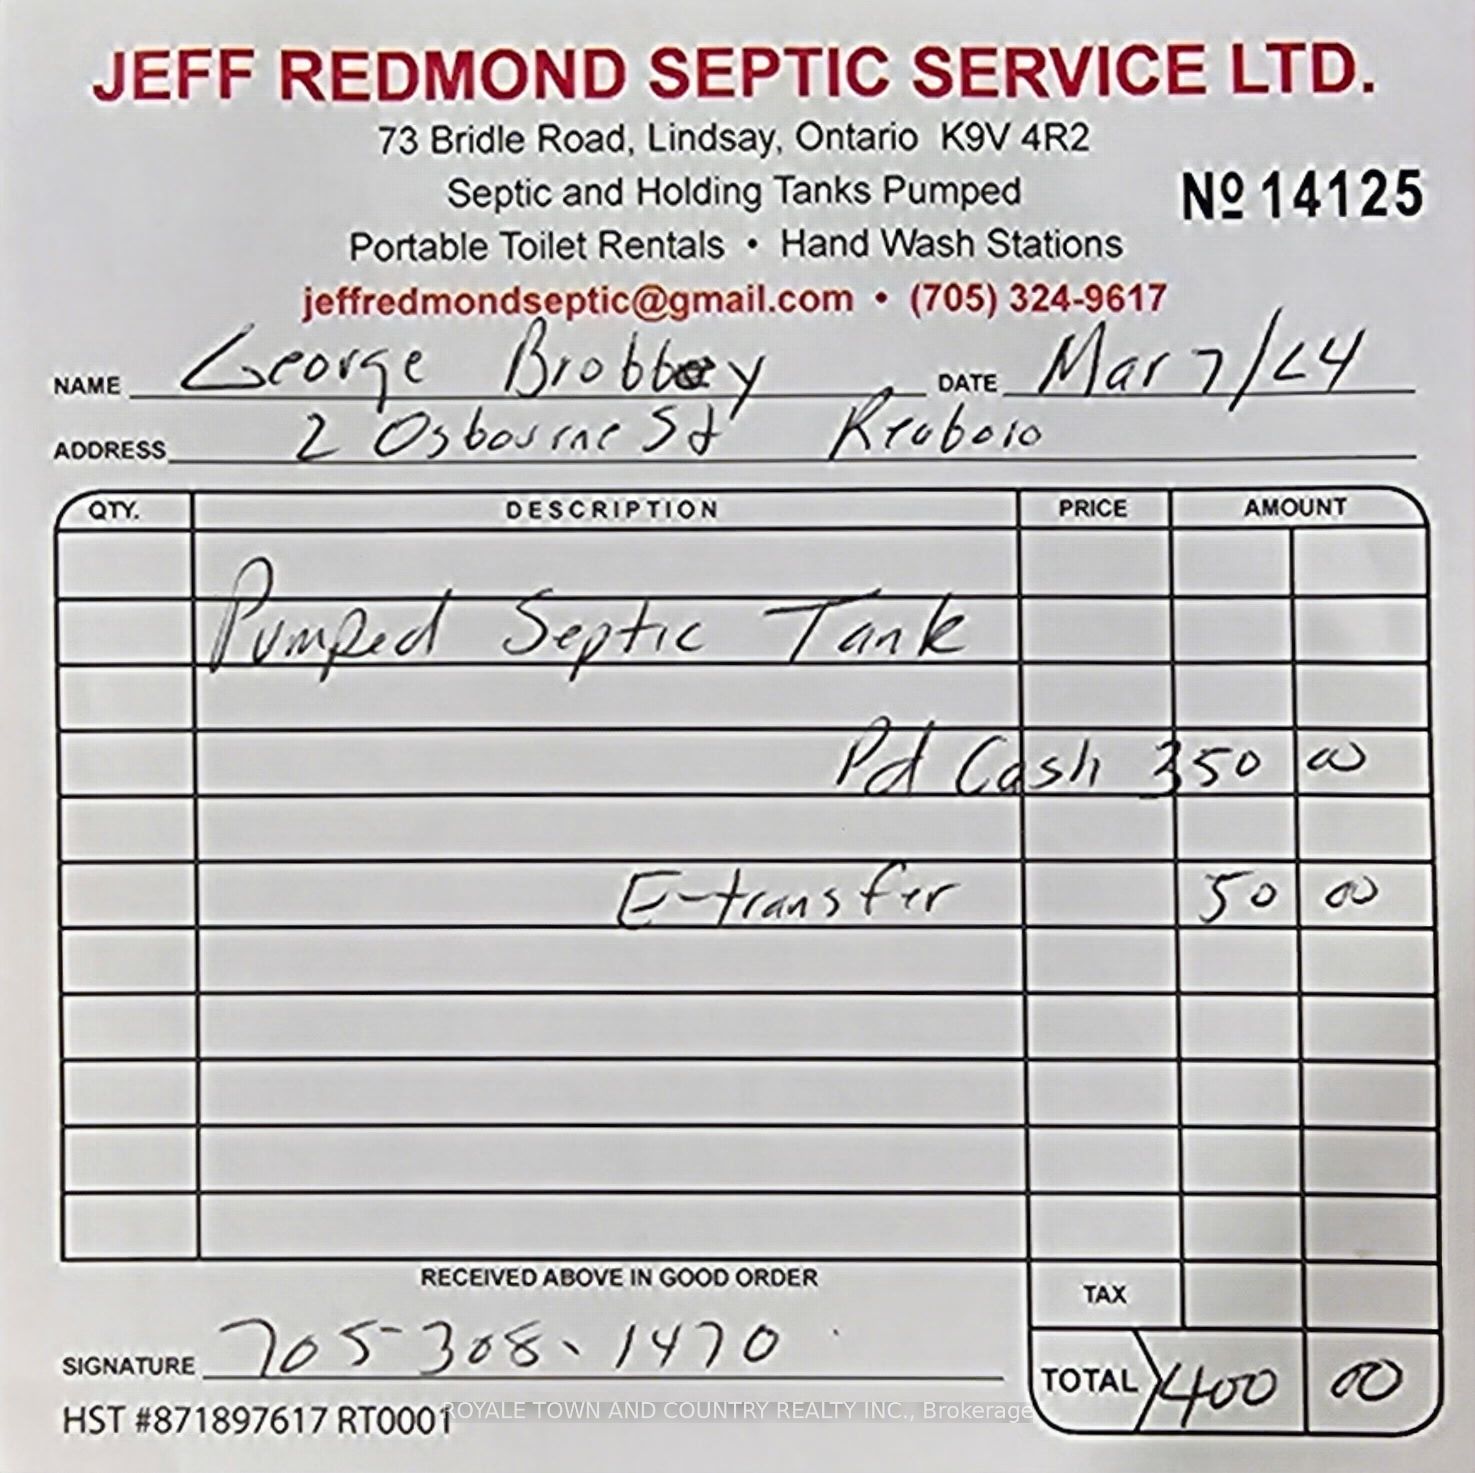 JEFF REDMOND SEPTIC SERVICE LTD.
73 Bridle Road, Lindsay, Ontario K9V 4R2
Septic and Holding Tanks Pumped
Nº 14125
Portable Toilet Rentals • Hand Wash Stations
jeffredmondseptic@gmail.com • (705) 324-9617
NAME George Brobbey DATE Mar 7/24
ADDRESS 2 Osbourne St
QTY. DESCRIPTION PRICE AMOUNT
Pumped Septic Tank
Pd Cash 350 00
E-transfer 50 00
RECEIVED ABOVE IN GOOD ORDER
TAX
SIGNATURE 705-308-1470
TOTAL 400 00
HST #871897617 RT0001
ROYALE TOWN AND COUNTRY REALTY INC., Brokerage